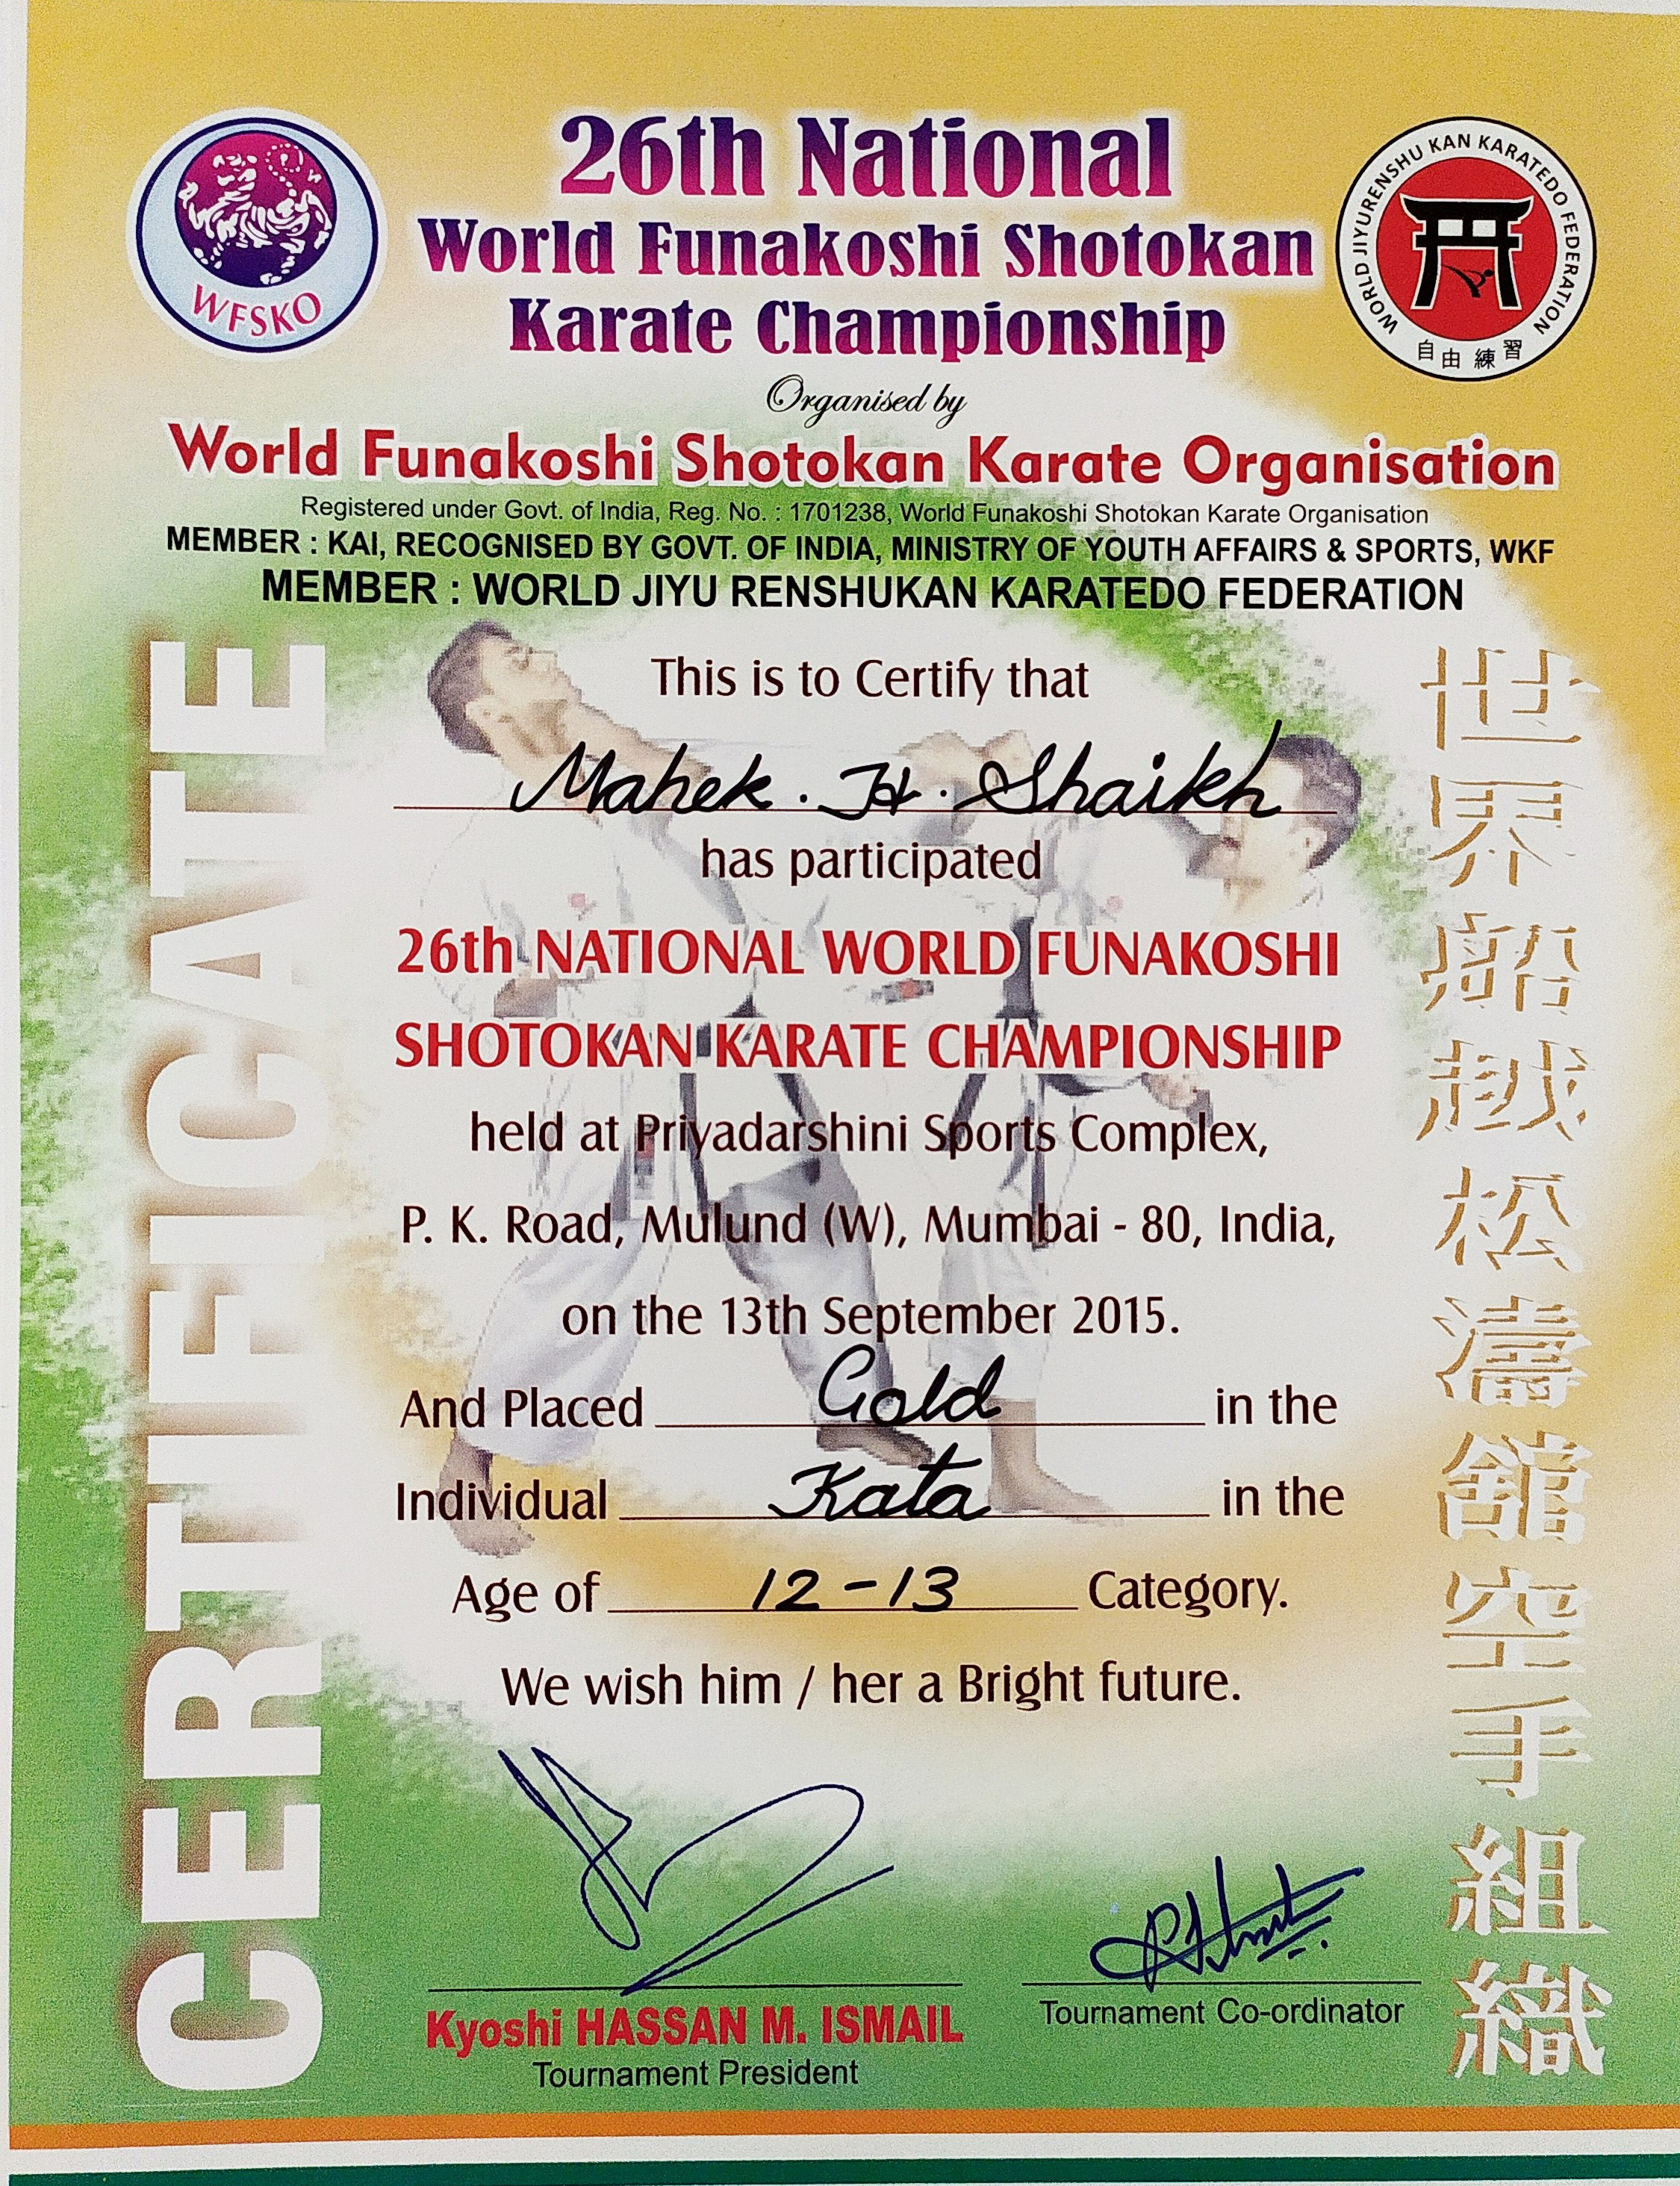 26th National
World Funakoshi Shotokan
Karate Championship
WFSKO
WORLD JIYURENSHU KAN KARATEDO FEDERATION
自由 練習
Organised by
World Funakoshi Shotokan Karate Organisation
Registered under Govt. of India, Reg. No. : 1701238, World Funakoshi Shotokan Karate Organisation
MEMBER : KAI, RECOGNISED BY GOVT. OF INDIA, MINISTRY OF YOUTH AFFAIRS & SPORTS, WKF
MEMBER : WORLD JIYU RENSHUKAN KARATEDO FEDERATION
CERTIFICATE
This is to Certify that
Mahek . H . Shaikh
has participated
26th NATIONAL WORLD FUNAKOSHI
SHOTOKAN KARATE CHAMPIONSHIP
held at Priyadarshini Sports Complex,
P. K. Road, Mulund (W), Mumbai - 80, India,
on the 13th September 2015.
And Placed Gold in the
Individual Kata in the
Age of 12 - 13 Category.
We wish him / her a Bright future.
世界船越松濤舘空手組織
Kyoshi HASSAN M. ISMAIL
Tournament President
Tournament Co-ordinator